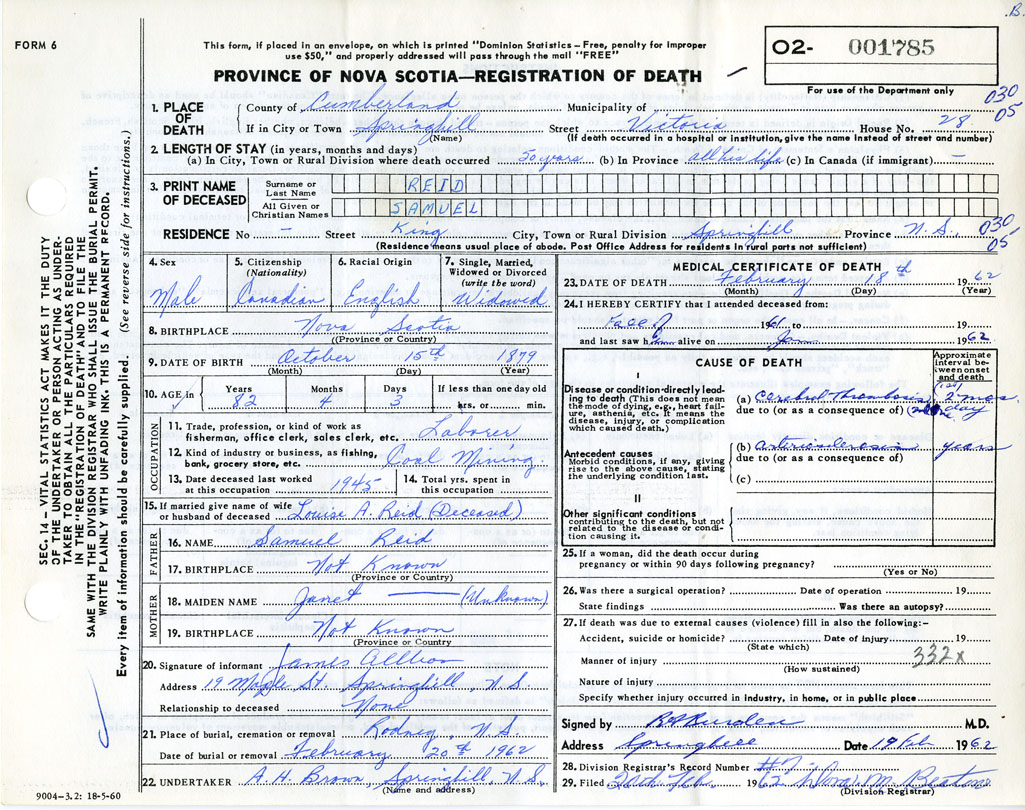 .B.
FORM 6
This form, if placed in an envelope, on which is printed "Dominion Statistics – Free, penalty for improper
use $50," and properly addressed will pass through the mail "FREE"
PROVINCE OF NOVA SCOTIA—REGISTRATION OF DEATH
02- 001785
For use of the Department only
030
05
1. PLACE OF DEATH
County of Cumberland Municipality of
If in City or Town Springhill Street Victoria House No. 28
(Name) (If death occurred in a hospital or institution, give the name instead of street and number)
2. LENGTH OF STAY (in years, months and days)
(a) In City, Town or Rural Division where death occurred 50 years (b) In Province all his life (c) In Canada (if immigrant) —
3. PRINT NAME OF DECEASED
Surname or Last Name REID
All Given or Christian Names SAMUEL
RESIDENCE No — Street King City, Town or Rural Division Springhill Province N.S.
030
05
(Residence means usual place of abode. Post Office Address for residents in rural parts not sufficient)
4. Sex Male
5. Citizenship (Nationality) Canadian
6. Racial Origin English
7. Single, Married, Widowed or Divorced (write the word) Widowed
8. BIRTHPLACE Nova Scotia
(Province or Country)
9. DATE OF BIRTH October 15th 1879
(Month) (Day) (Year)
10. AGE in Years 82 Months 4 Days 3 If less than one day old hrs. or min.
OCCUPATION
11. Trade, profession, or kind of work as
fisherman, office clerk, sales clerk, etc. Laborer
12. Kind of industry or business, as fishing,
bank, grocery store, etc. Coal Mining.
13. Date deceased last worked
at this occupation 1945
14. Total yrs. spent in
this occupation
15. If married give name of wife
or husband of deceased Louise A. Reid (Deceased)
FATHER
16. NAME Samuel Reid
17. BIRTHPLACE Not Known
(Province or Country)
MOTHER
18. MAIDEN NAME Janet — (Unknown)
19. BIRTHPLACE Not Known
(Province or Country
20. Signature of informant James
Address 19 Maple St. Springhill, N.S.
Relationship to deceased None
21. Place of burial, cremation or removal Rodney, N.S.
Date of burial or removal February 20th 1962
22. UNDERTAKER A. H. Brown, Springhill, N.S.
(Name and address)
9004-3.2: 18-5-60
SEC. 14 – VITAL STATISTICS ACT MAKES IT THE DUTY
OF THE UNDERTAKER OR PERSON ACTING AS UNDER-
TAKER TO OBTAIN ALL THE PARTICULARS REQUIRED
IN THE "REGISTRATION OF DEATH" AND TO FILE THE
SAME WITH THE DIVISION REGISTRAR WHO SHALL ISSUE THE BURIAL PERMIT.
WRITE PLAINLY WITH UNFADING INK. THIS IS A PERMANENT RECORD.
Every item of information should be carefully supplied. (See reverse side for instructions.)
MEDICAL CERTIFICATE OF DEATH
23. DATE OF DEATH February 18th 1962
(Month) (Day) (Year)
24. I HEREBY CERTIFY that I attended deceased from:
Fall of 1961 to 19
and last saw him alive on Jan 1962
CAUSE OF DEATH
Approximate interval between onset and death
I
Disease or condition directly lead-
ing to death (This does not mean
the mode of dying, e.g., heart fail-
ure, asthenia, etc. It means the
disease, injury, or complication
which caused death.)
(a) Cerebral Thrombosis (1st) 2 mos.
due to (or as a consequence of) (2nd) day
Antecedent causes
Morbid conditions, if any, giving
rise to the above cause, stating
the underlying condition last.
(b) arteriosclerosis years
due to (or as a consequence of)
(c)
II
Other significant conditions
contributing to the death, but not
related to the disease or condi-
tion causing it.
25. If a woman, did the death occur during
pregnancy or within 90 days following pregnancy?
(Yes or No)
26. Was there a surgical operation? Date of operation 19
State findings Was there an autopsy?
27. If death was due to external causes (violence) fill in also the following:-
Accident, suicide or homicide? Date of injury 19
(State which)
Manner of injury 332x
(How sustained)
Nature of injury
Specify whether injury occurred in industry, in home, or in public place
Signed by M.D.
Address Springhill Date 19 Feb 1962
28. Division Registrar's Record Number #7
29. Filed 20th Feb. 1962 M. Beaton
(Division Registrar)